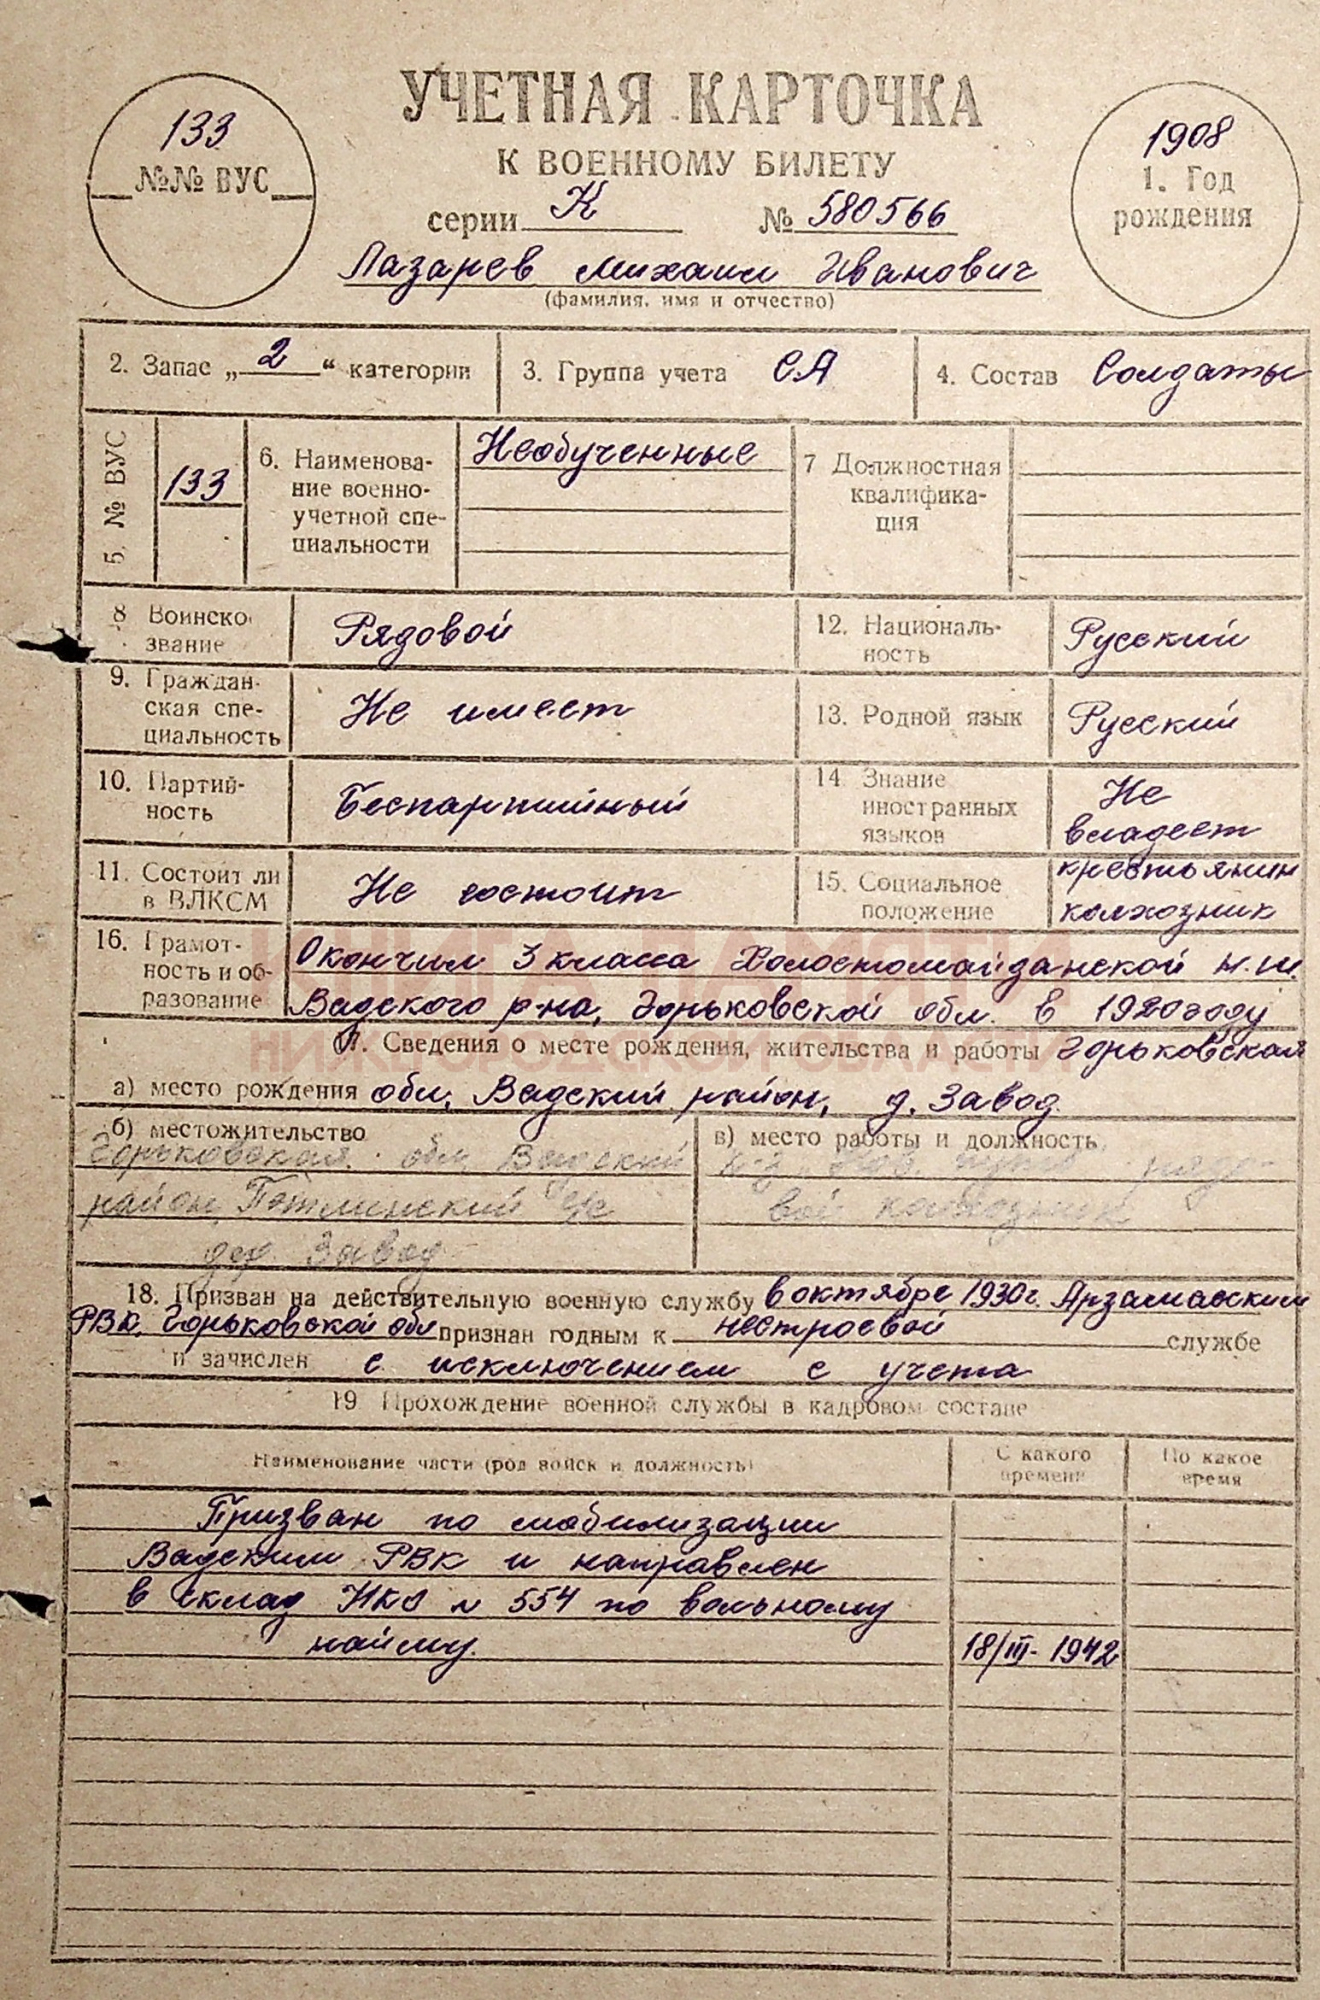 УЧЕТНАЯ КАРТОЧКА
К ВОЕННОМУ БИЛЕТУ
133
№№ ВУС
серии К № 580566
1908
1. Год
рождения
Лазарев Михаил Иванович
(фамилия, имя и отчество)
2. Запас „2“ категории
3. Группа учета СА
4. Состав Солдаты
5. № ВУС
133
6. Наименова-
ние военно-
учетной спе-
циальности
Необученные
7 Должностная
квалифика-
ция
8 Воинско
звание
Рядовой
12. Националь-
ность
Русский
9. Граждан-
ская спе-
циальность
Не имеет
13. Родной язык
Русский
10. Партий-
ность
Беспартийный
14. Знание
иностранных
языков
Не
владеет
11. Состоит ли
в ВЛКСМ
Не состоит
15. Социальное
положение
крестьянин
колхозник
16. Грамот-
ность и об-
разование
Окончил 3 класса Холостомайданской н.ш.
Вадского р-на, Горьковской обл. в 1920 году
КНИГА ПАМЯТИ
НИЖЕГОРОДСКОЙ ОБЛАСТИ
17. Сведения о месте рождения, жительства и работы Горьковская
а) место рождения обл, Вадский район, д. Завод
б) местожительство
Горьковская обл Вадский
район, Петлинский с/с
дер. Завод
в) место работы и должность
к-з рядо-
вой колхозник
18. Призван на действительную военную службу в октябре 1930г. Арзамасским
РВК, Горьковской обл признан годным к нестроевой службе
и зачислен с исключением с учета
19 Прохождение военной службы в кадровом составе
Наименование части (род войск и должность)
С какого
времени
По какое
время
Призван по мобилизации
Вадским РВК и направлен
в склад НКО № 554 по вольному
найму.
18/III- 1942